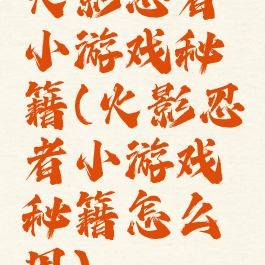 火影忍者
小游戏秘
籍(火影忍
者小游戏
秘籍怎么
用)